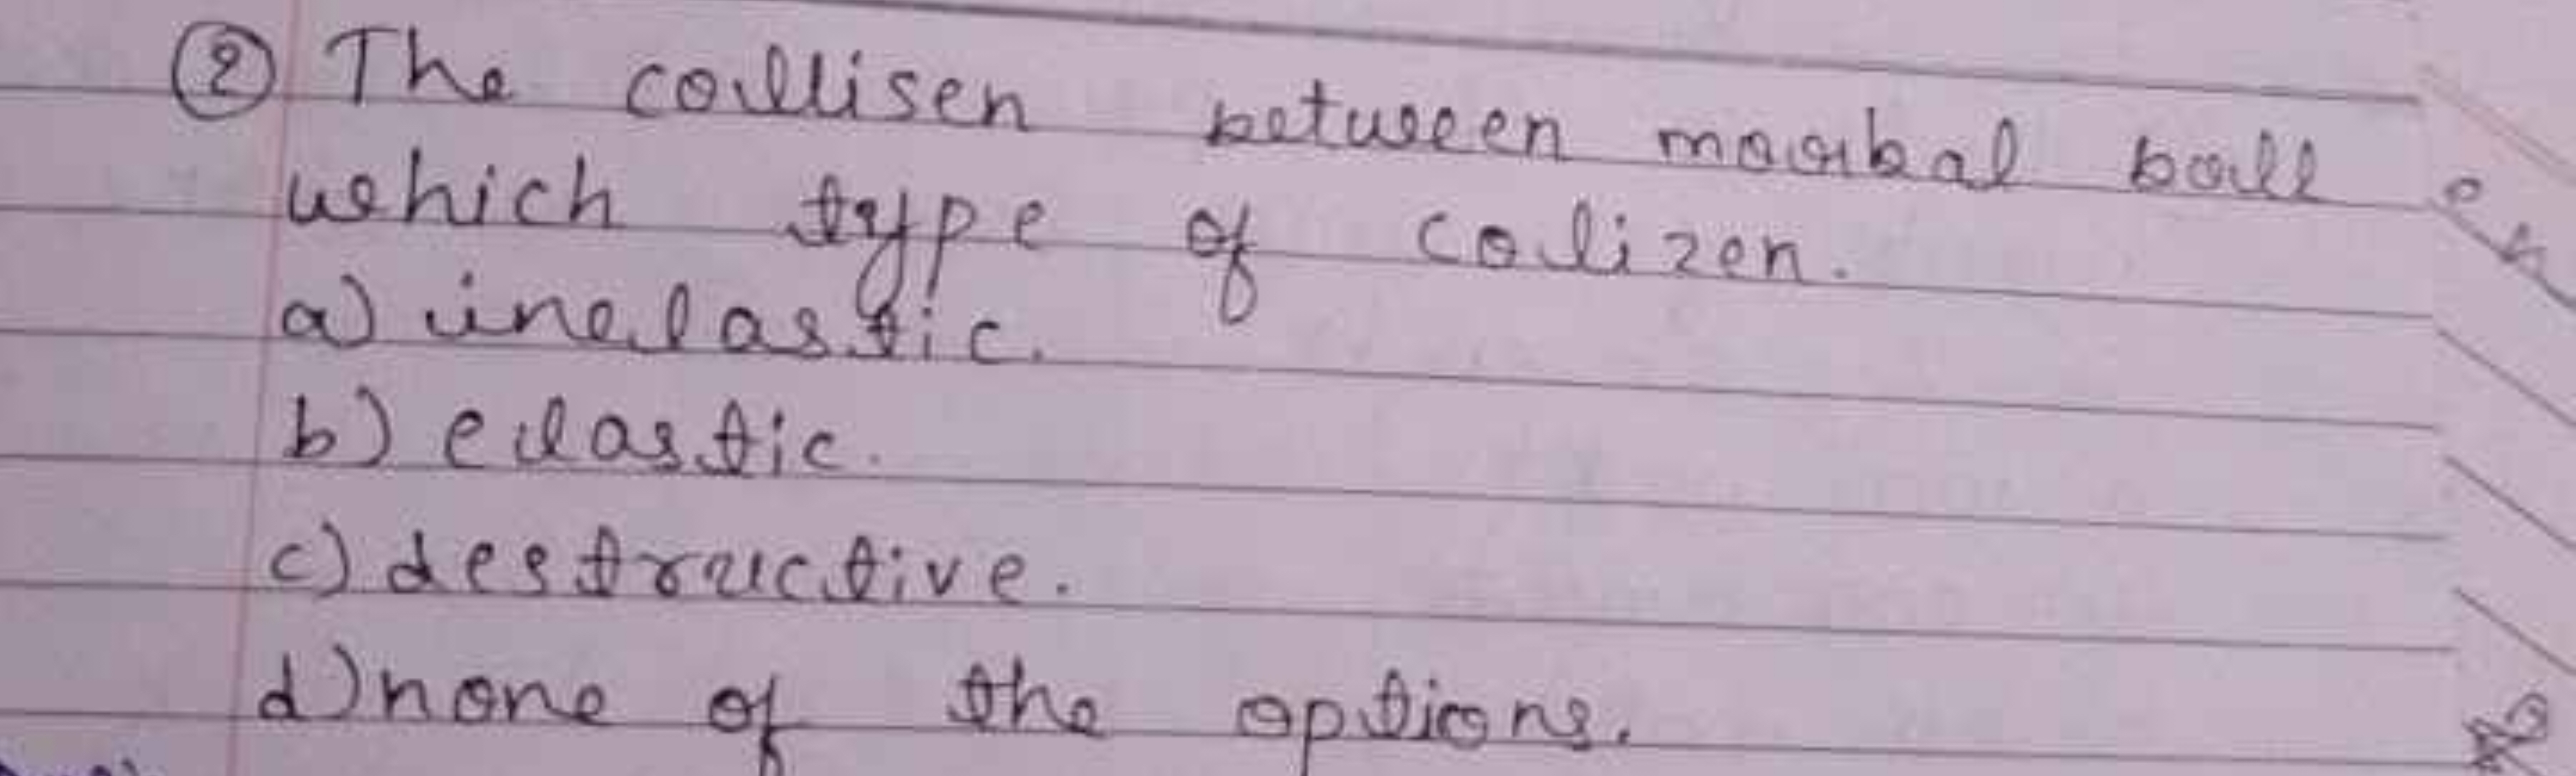 ② The collisen between marbal ball
which type of colizen.
a) inelastic.
b) elastic.
c) destructive.
d) none of the options.